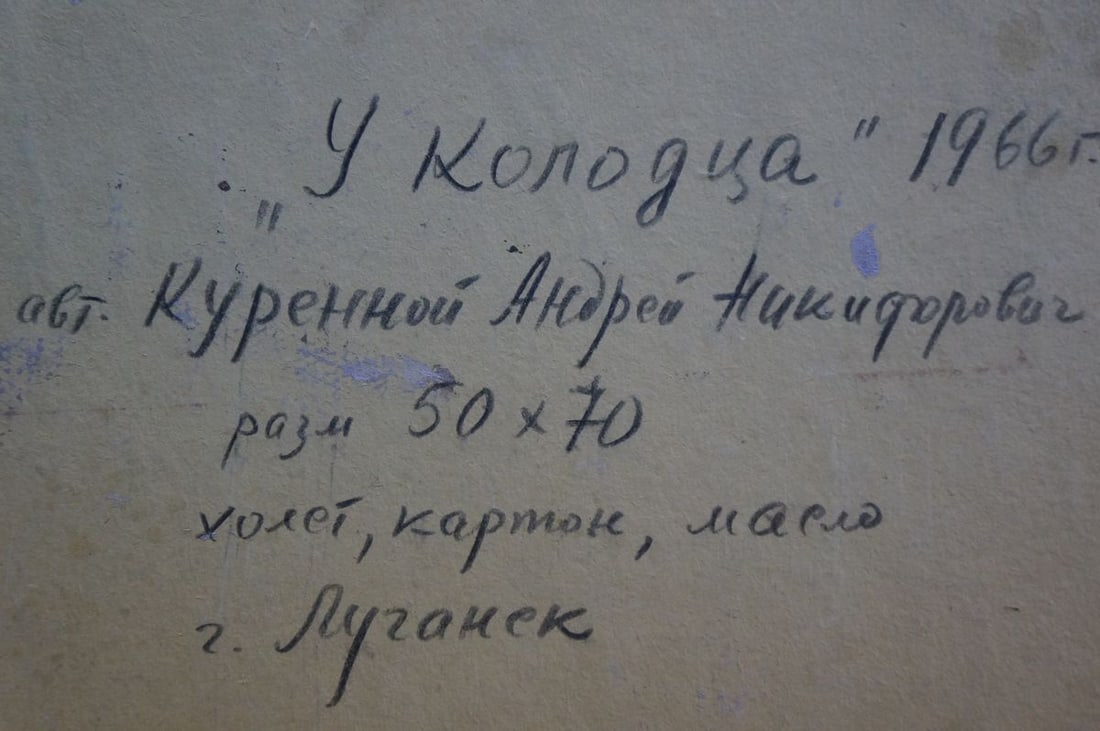 „У Колодца" 1966 г.
авт. Куренной Андрей Никифорович
разм 50 х 70
холст, картон, масло
г. Луганск